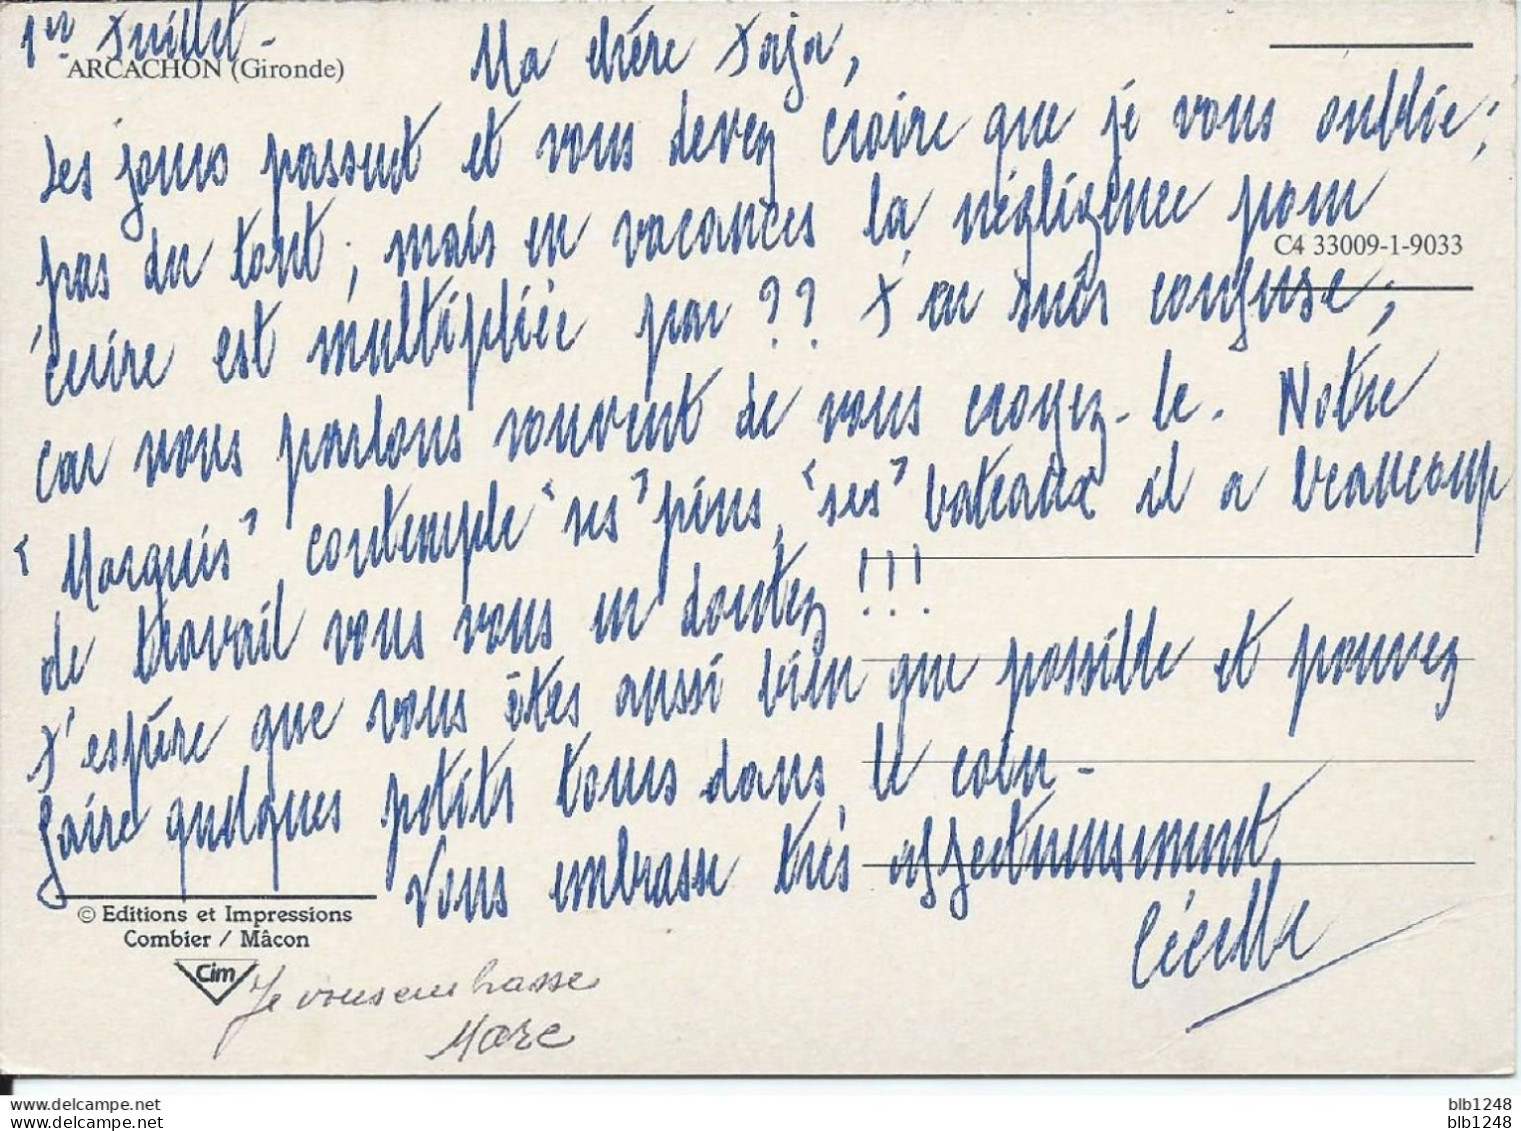 1er Juillet-
ARCACHON (Gironde)
Ma chère Jaja,
Les jours passent et vous devez croire que je vous oublie;
pas du tout; mais en vacances la négligence pour
C4 33009-1-9033
écrire est multipliée par ?? J'en suis confuse;
car nous parlons souvent de vous croyez-le. Notre
"Marquis" contemple "ses" pins, "ses" bateaux il a beaucoup
de travail vous vous en doutez !!!
J'espère que vous êtes aussi bien que possible et pouvez
faire quelques petits tours dans le coin-
Vous embrasse très affectueusement,
Cécille
© Editions et Impressions
Combier / Mâcon
Cim
Je vous embrasse
Marc
delcampe.net
delcampe.net
blb1248
blb1248